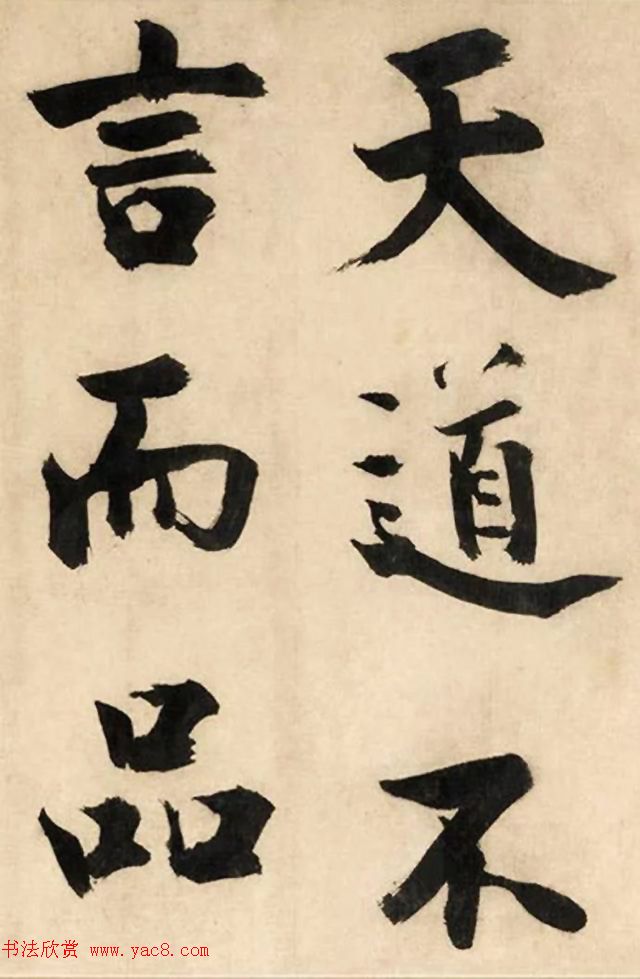 天道不
言而品
书法欣赏 www.yac8.com